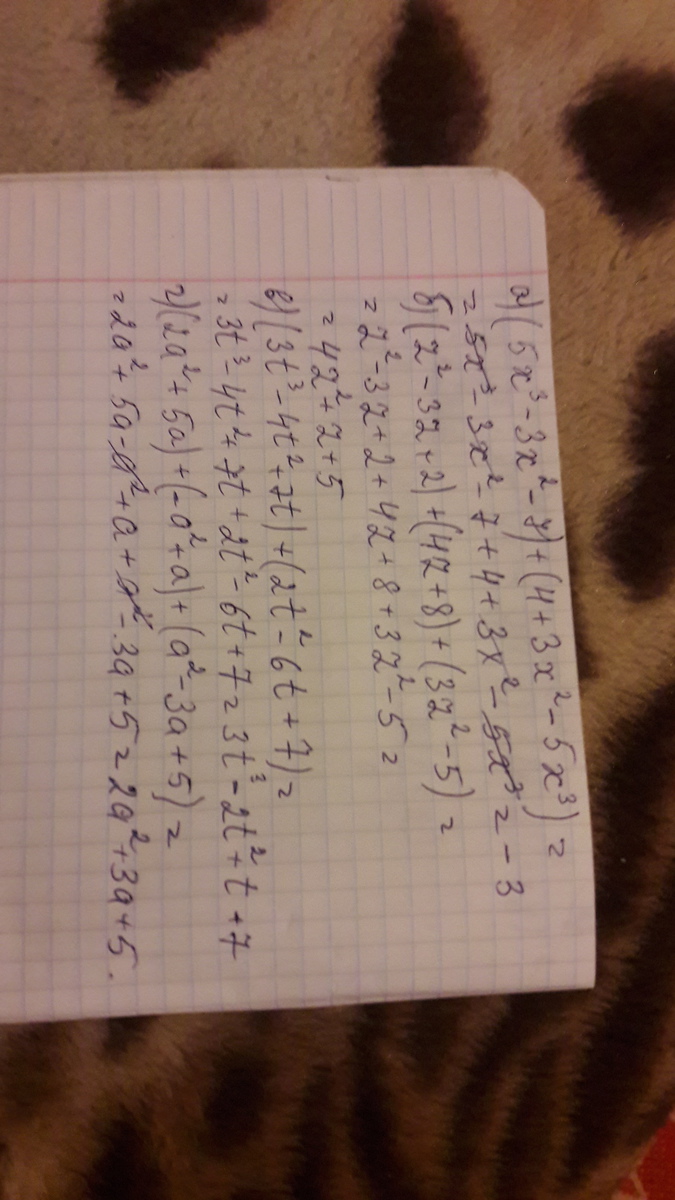 а) (5x³-3x²-7)+(4+3x²-5x³)=
=5x³-3x²-7+4+3x²-5x³=-3
б) (z²-3z+2)+(4z+8)+(3z²-5)=
=z²-3z+2+4z+8+3z²-5=
=4z²+z+5
в) (3t³-4t²+7t)+(2t²-6t+7)=
=3t³-4t²+7t+2t²-6t+7=3t³-2t²+t+7
г) (2a²+5a)+(-a²+a)+(a²-3a+5)=
=2a²+5a-a²+a+a²-3a+5=2a²+3a+5.